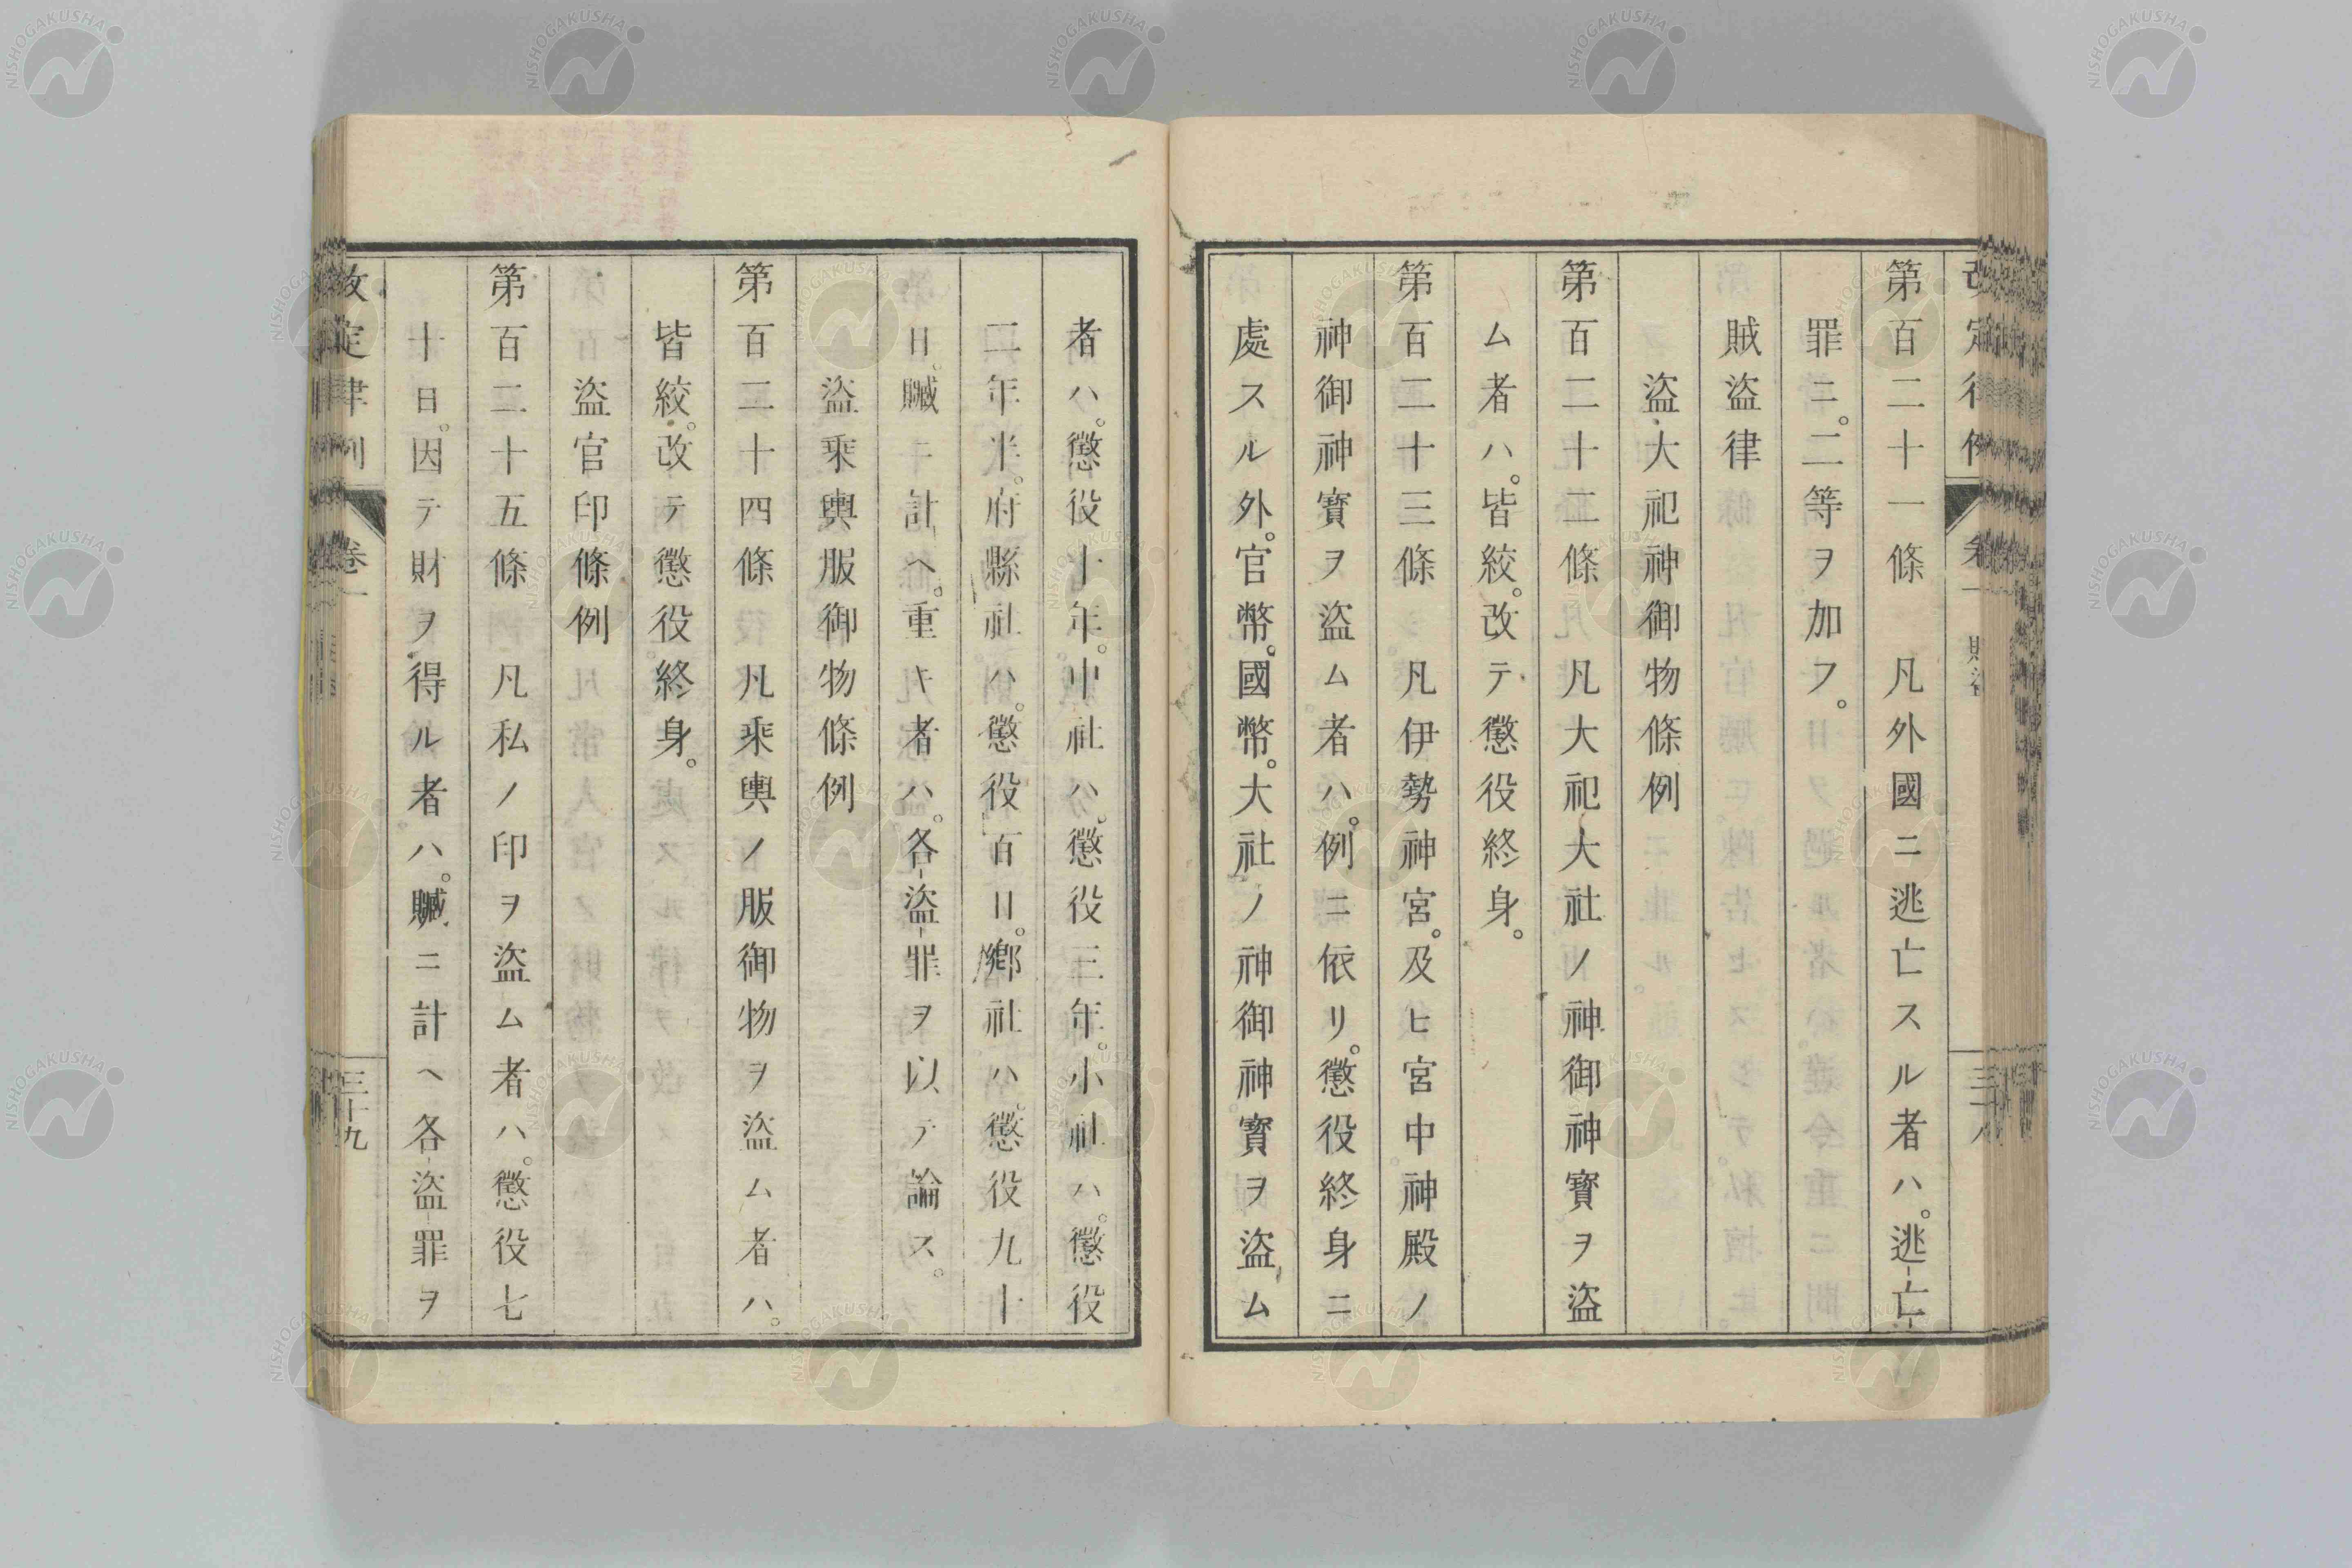 第百二十一條　凡外國ニ逃亡スル者ハ。逃亡
罪ニ。二等ヲ加フ。
賊盜律
盜大祀神御物條例
第百二十二條　凡大祀大社ノ神御神寶ヲ盜
ム者ハ。皆絞。改テ懲役終身。
第百二十三條　凡伊勢神宮。及ヒ宮中神殿ノ
神御神寶ヲ盜ム者ハ。例ニ依リ。懲役終身ニ
處スル外。官幣。國幣。大社ノ神御神寶ヲ盜ム
者ハ。懲役十年。中社ハ。懲役三年。小社ハ。懲役
二年半。府縣社ハ。懲役百日。鄉社ハ。懲役九十
日。贓ニ計ヘ。重キ者ハ。各盜罪ヲ以テ論ス。
盜乘輿服御物條例
第百二十四條　凡乘輿ノ服御物ヲ盜ム者ハ。
皆絞。改テ懲役終身。
盜官印條例
第百二十五條　凡私ノ印ヲ盜ム者ハ。懲役七
十日。因テ財ヲ得ル者ハ。贓ニ計ヘ各盜罪ヲ
改定律例　卷一　三十九
NISHOGAKUSHA